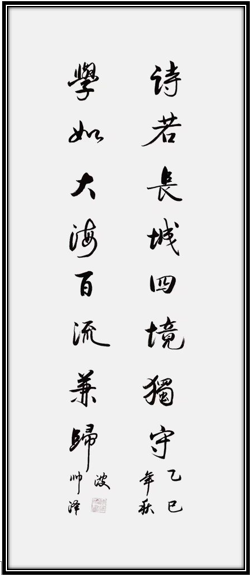 詩若長城四境獨守
學如大海百流兼歸
乙巳
年秋
波
帅泽